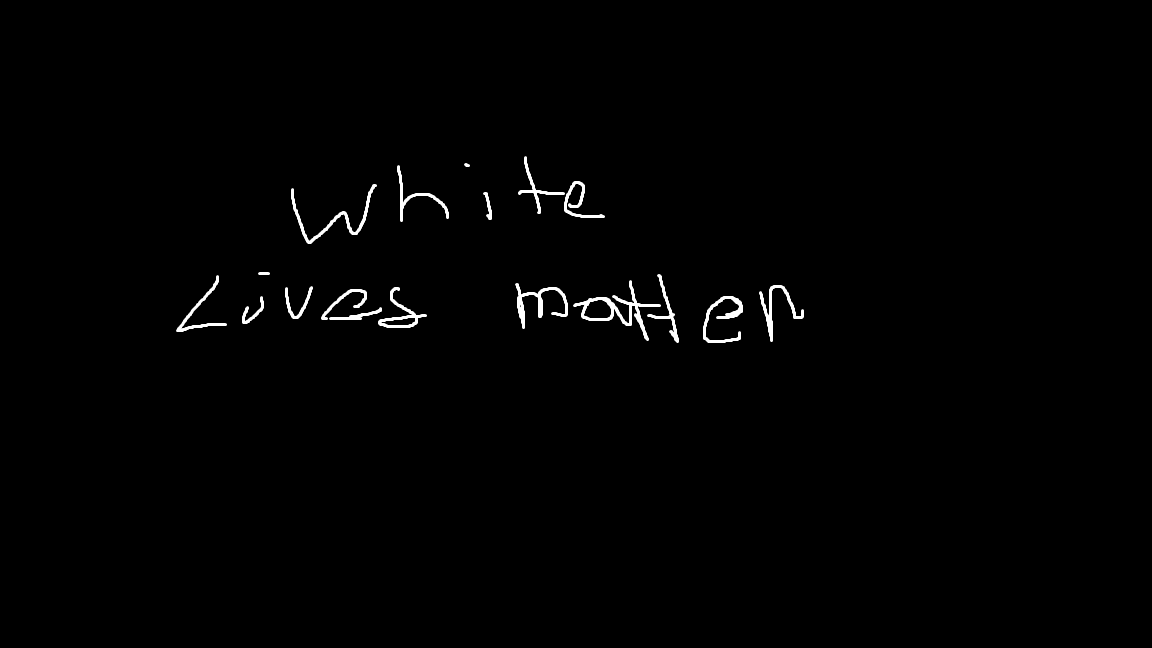 White
Lives matter